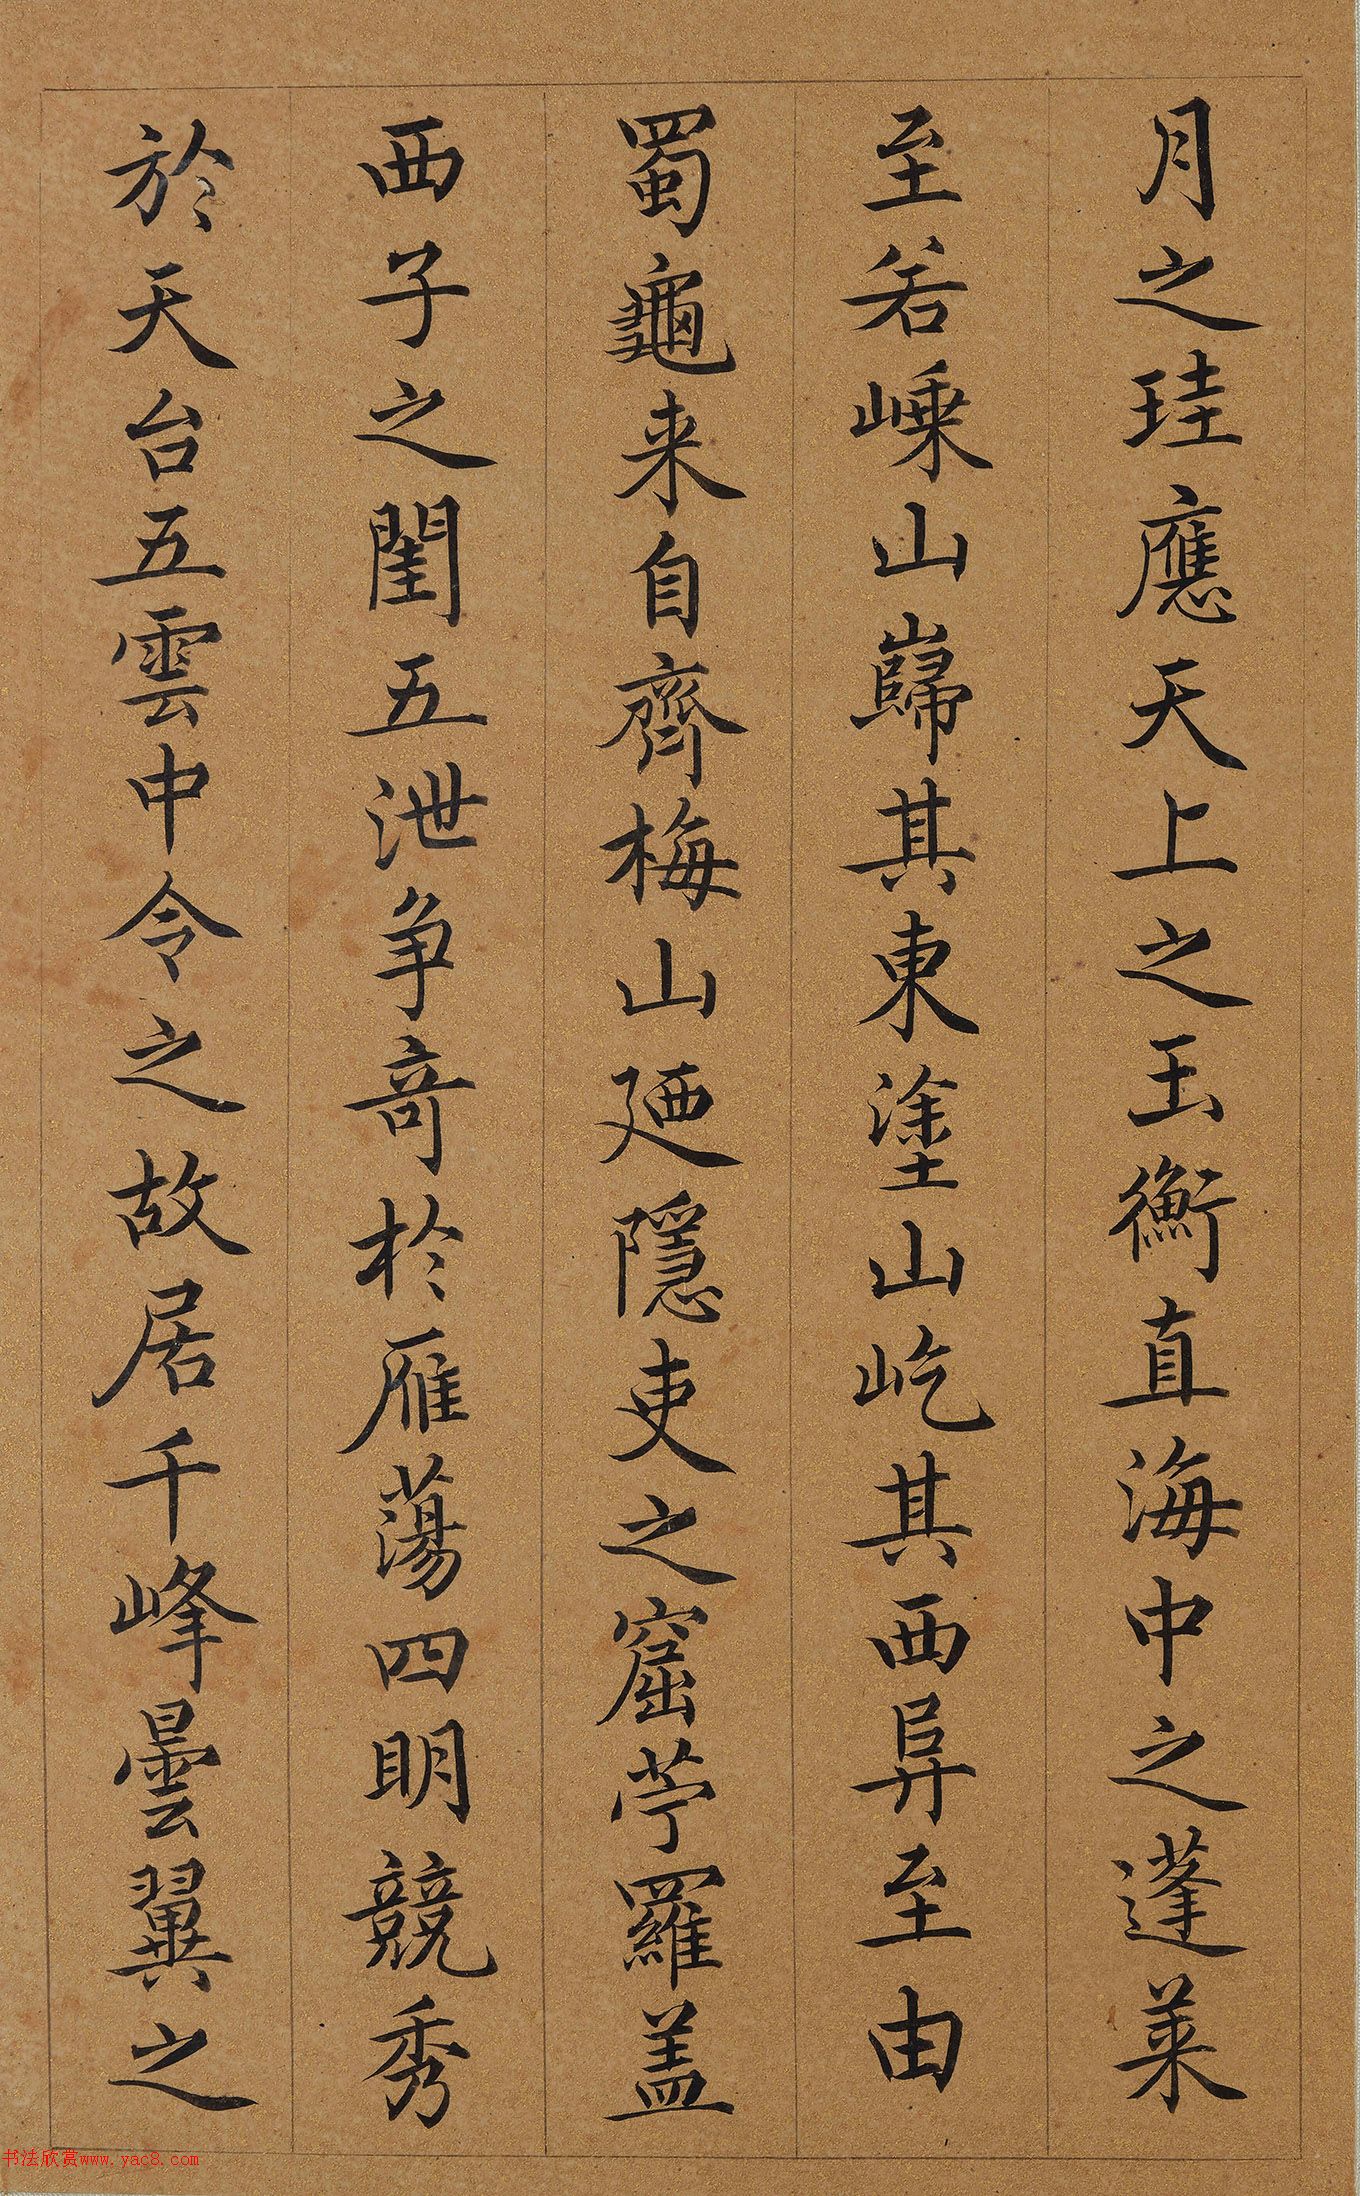 月之珪應天上之玉衡直海中之蓬萊
至若嵊山巋其東塗山屹其西舁至由
蜀龜来自齊梅山廼隱吏之窟苧羅盖
西子之閨五泄争竒於雁蕩四明競秀
於天台五雲中令之故居千峰曇翼之
书法欣赏www.yac8.com